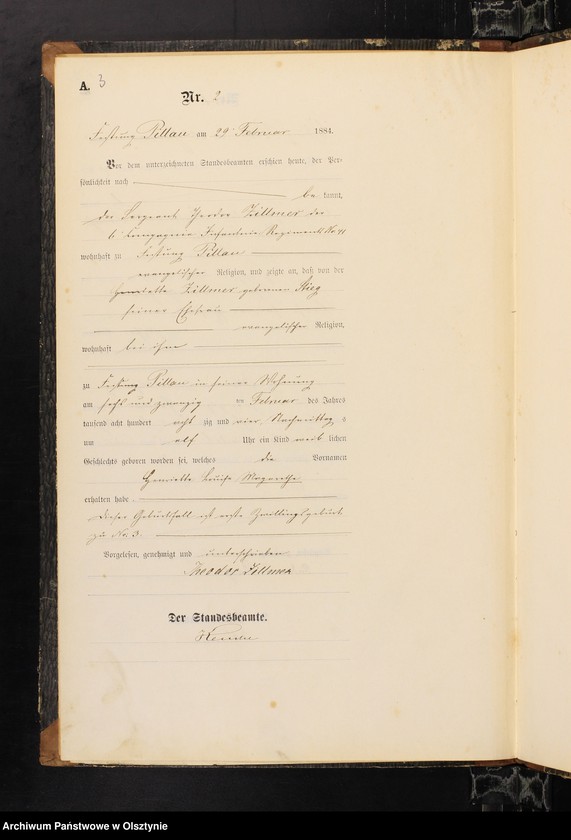 A. 3
Nr. 2
Festung Pillau am 29 Februar 1884.
Vor dem unterzeichneten Standesbeamten erschien heute, der Per-
sönlichkeit nach
be kannt,
der Sergeant Theodor Zillmer der
6 Compagnie Infanterie Regiments No 41
wohnhaft zu Festung Pillau
evangelischer Religion, und zeigte an, daß von der
Henriette Zillmer geborenen Stieg
seiner Ehefrau
evangelischer Religion,
wohnhaft bei ihm
zu Festung Pillau in seiner Wohnung
am sechs und zwanzig ten Februar des Jahres
tausend acht hundert acht zig und vier Nachmittag s
um elf Uhr ein Kind weib lichen
Geschlechts geboren worden sei, welches die Vornamen
Henriette Louise Margarethe
erhalten habe.
Dieser Geburtsfall ist erste Zwillingsgeburt
zu No. 3.
Vorgelesen, genehmigt und unterschrieben
Theodor Zillmer
Der Standesbeamte.
Archiwum Państwowe w Olsztynie